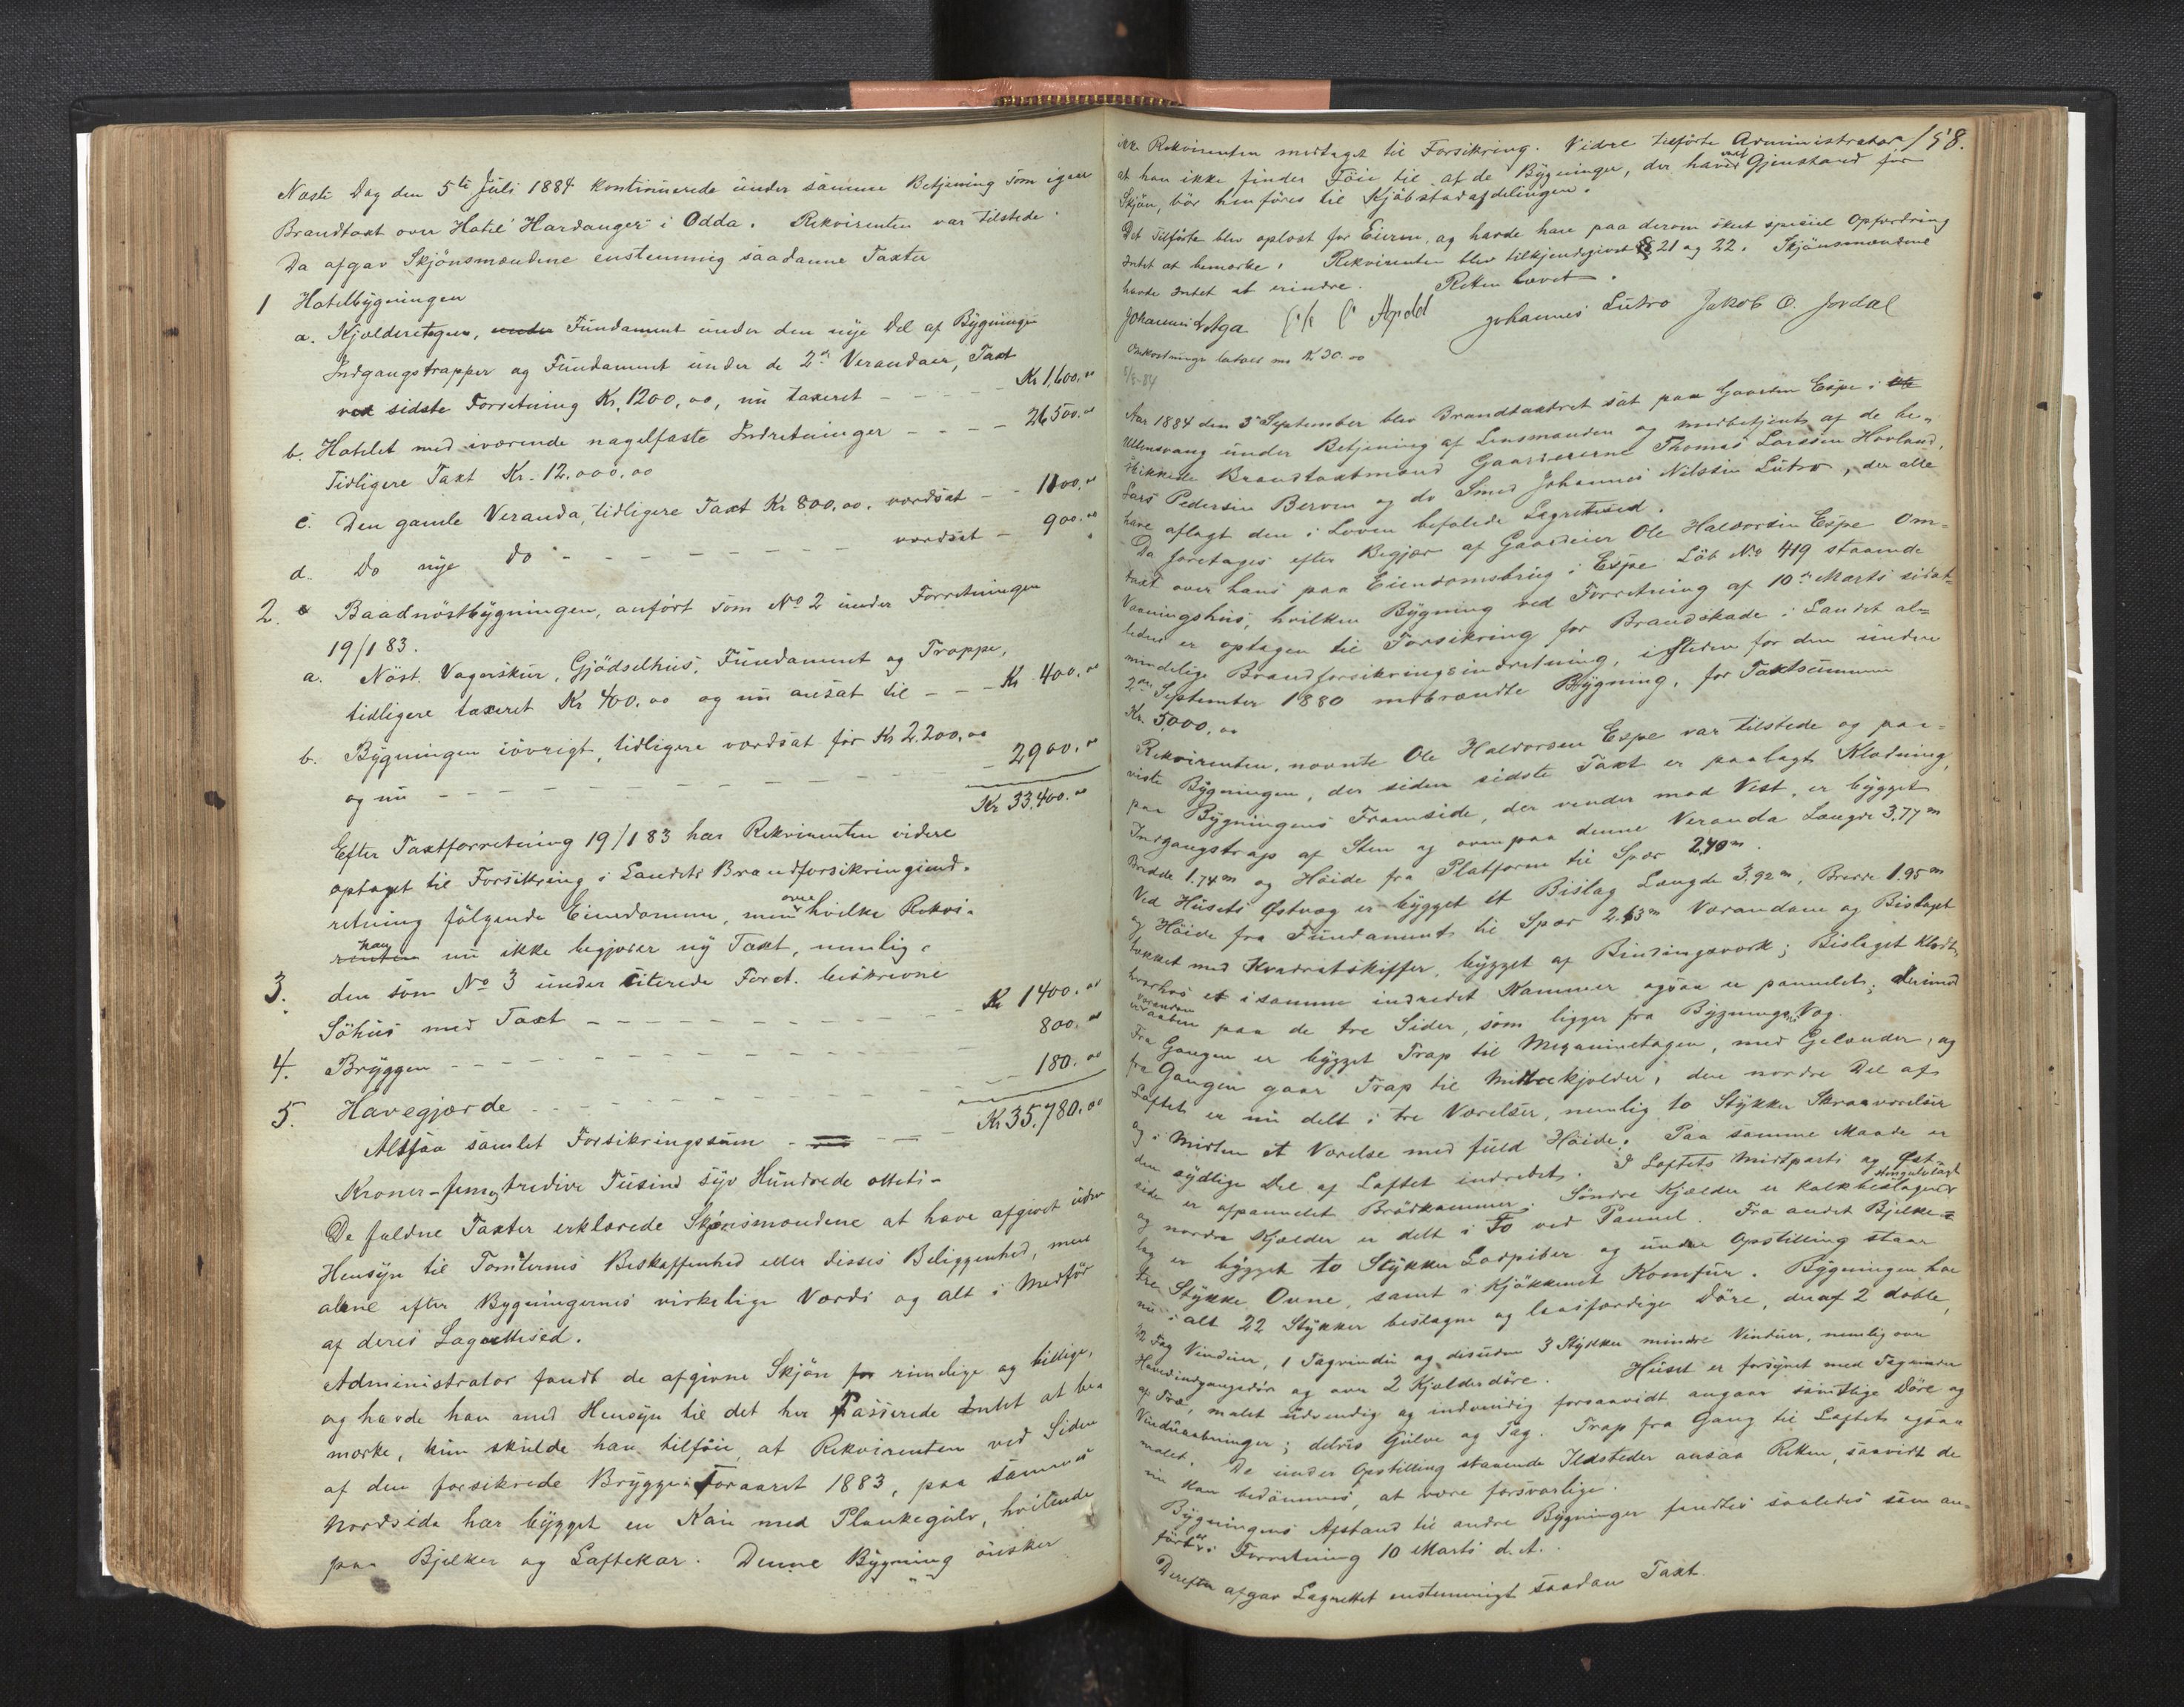 Næste Dag den 5te Juli 1884 kontinuerede under samme Betjening som igaar
Brandtaxt over Hotel Hardanger i Odda. Rekvirenten var tilstede.
Da afgav Skjönsmændene enstemmig saadanne Taxter
1 Hotelbygningen
a. Kjælderetagen, under Fundament under den nye Del af Bygningen
Indgangstrapper og Fundament under de 2de Verandaer, Taxt
ved sidste Forretning Kr. 1200,00, nu taxeret - - - - Kr 1,600.00
b. Hotelet med iværende nagelfaste Indretninger - - - - 26,500.00
Tidligere Taxt Kr. 12,000,00
c. Den gamle Veranda, tidligere Taxt Kr 800,00. værdsat - - 1100,00
d. Do nye Do - - - - - - - værdsat - 900.00
2. Baadnöstbygningen, anfört som No 2 under Forretningen
19/1 83.
a. Nöst. Vognskur, Gjödselhus, Fundament og Trappe,
tidligere taxeret Kr 400,00 og nu ansat til - - - Kr 400,00
b. Bygningen iövrigt, tidligere værdsat för Kr 2,200,00
og nu - - - - - - - - - 2900,00
Kr 33,400.00
Efter Taxtforretning 19/1 83 har Rekvirenten videre
optaget til Forsikring i Landets Brandforsikringsind-
retning fölgende Eiendomme, men over hvilke Rekvi-
renten han nu ikke begjærer ny Taxt, nemlig:
3. den som No 3 under citerede Forret. beskrevne
Söhus med Taxt - - - - - - - - Kr 1400.00
4. Bryggen - - - - - - - - 800.00
5. Havegjærde - - - - - - - - 180.00
Altsaa samlet Forsikringssum - - - - Kr 35,780.00
Kroner-femogtredive Tusind syv Hundrede otteti-
De faldne Taxter erklærede Skjönsmændene at have afgivet uden
Hensyn til Tomternes Beskaffenhed eller disses Beliggenhed, men
alene efter Bygningernes virkelige Værdi og alt i Medför
af deres Lagrettesed.
Administrator fandt de afgivne Skjön for rimelige og billige,
og havde han med Hensyn til det her Passerede Intet at be-
mærke, kun skulde han tilföie, at Rekvirenten ved Siden
af den forsikrede Brygge i Foraaret 1883, paa sammes
Nordside har bygget en Kai med Plankegulv, hvilende
paa Bjelker og Laftekar. Denne Bygning önsker
158.
ikke Rekvirenten medtaget til Forsikring. Videre tilförte Administrator
at han ikke finder Föie til at de Bygninger, der have været Gjenstand for
Skjön, bör henföres til Kjöbstadafdelingen.
Det Tilförte blev oplæst for Eieren, og havde han paa derom sket speciel Opfordring
Intet at bemærke. Rekvirenten blev tilkjendegivet §§ 21 og 22. Skjönsmændene
havde Intet at erindre. Retten hævet.
Johannes Aga Johannes Lutro Jakob O. Jordal
Omkostninger betalt med Kr 30.00
Aar 1884 den 3die September blev Brandtaxtret sat paa Gaarden Espe i
Ullensvang under Betjening af Lensmanden og medbetjent af de be-
skikkede Brandtaxtmænd Gaardeierne Thomas Larssen Hovland,
Lars Pedersen Berven og do Smed Johannes Nilssen Lutro, der alle
have aflagt den i Loven befalede Lagrettesed.
Da foretages efter Begjær af Gaardeier Ole Haldorsen Espe Om-
taxt over hans paa Eiendomsbrug i Espe Löb No 419 staaende
Vaaningshus, hvilken Bygning ved Forretning af 10de Marts sidst-
leden er optagen til Forsikring for Brandskade i Landets al-
mindelige Brandforsikringsindretning, i Steden for den under
2den September 1880 nedbrændte Bygning, for Taxtsummen
Kr. 5000,00
Rekvirenten, nævnte Ole Haldorsen Espe var tilstede og paa-
viste Bygningen, der siden sidste Taxt er paalagt Klædning,
paa Bygningens Framside, der vender mod Vest, er bygget
Indgangstrap af Sten og ovenpaa denne Veranda Længde 3,77 m
Bredde 1.74 m og Höide fra Platform til Spær 2,40 m.
Ved Husets Østvæg er bygget et Bislag Længde 3.92 m, Bredde 1.95 m
og Höide fra Fundament til Spær 2.63 m Verandaen og Bislaget
tækket med Kvadratskiffer, bygget af Bindingsværk; Bislaget klædt,
hvorhos et i samme indredet Kammer ogsaa er pannelet; derimod
er Verandaen aaben paa de tre Sider, som ligger fra Bygningens Væg.
Fra Gangen er bygget Trap til Mezaninetagen, med Gelænder, og
fra Gangen gaar Trap til Midtrekjelder, den nordre Del af
Loftet er nu delt i tre Værelser, nemlig to Stykker Skraaværelser
og i Midten et Værelse med fuld Höide. Paa samme Maade er
den sydlige Del af Loftet indredet. I Loftets Midtparti og Øst-
side er afpannelet Brödkammer. Söndre Kjælder er kalkbeslagen og stengulvlagt
og nordre Kjælder er delt i To ved Pannel. Fra andet Bjelke-
lag er bygget to Stykker Lodpiber og under Opstilling staar
tre Stykke Ovne, samt i Kjökkenet Komfur. Bygningen har
nu i alt 22 Stykker beslagne og laasfærdige Döre, deraf 2 doble,
22 Fag Vinduer, 1 Tagvindu og desuden 3 Stykker mindre Vinduer, nemlig over
Hovedindgangsdör og over 2 Kjælderdöre. Huset er forsynet med Tagrender
af Træ, malet udvendig og indvendig forsaavidt angaar samtlige Döre og
Vinduaabninger; delvis Gulve og Tag. Trap fra Gang til Loftet ogsaa
malet. De under Opstilling staaende Ildsteder ansaa Retten, saavidt de
nu kan bedömmes, at være forsvarlige.
Bygningens Afstand til andre Bygninger fandtes saaledes som an-
fört er i Forretning 10 Marts d. A.
Derefter afgav Lagrettet enstemmigt saadan Taxt